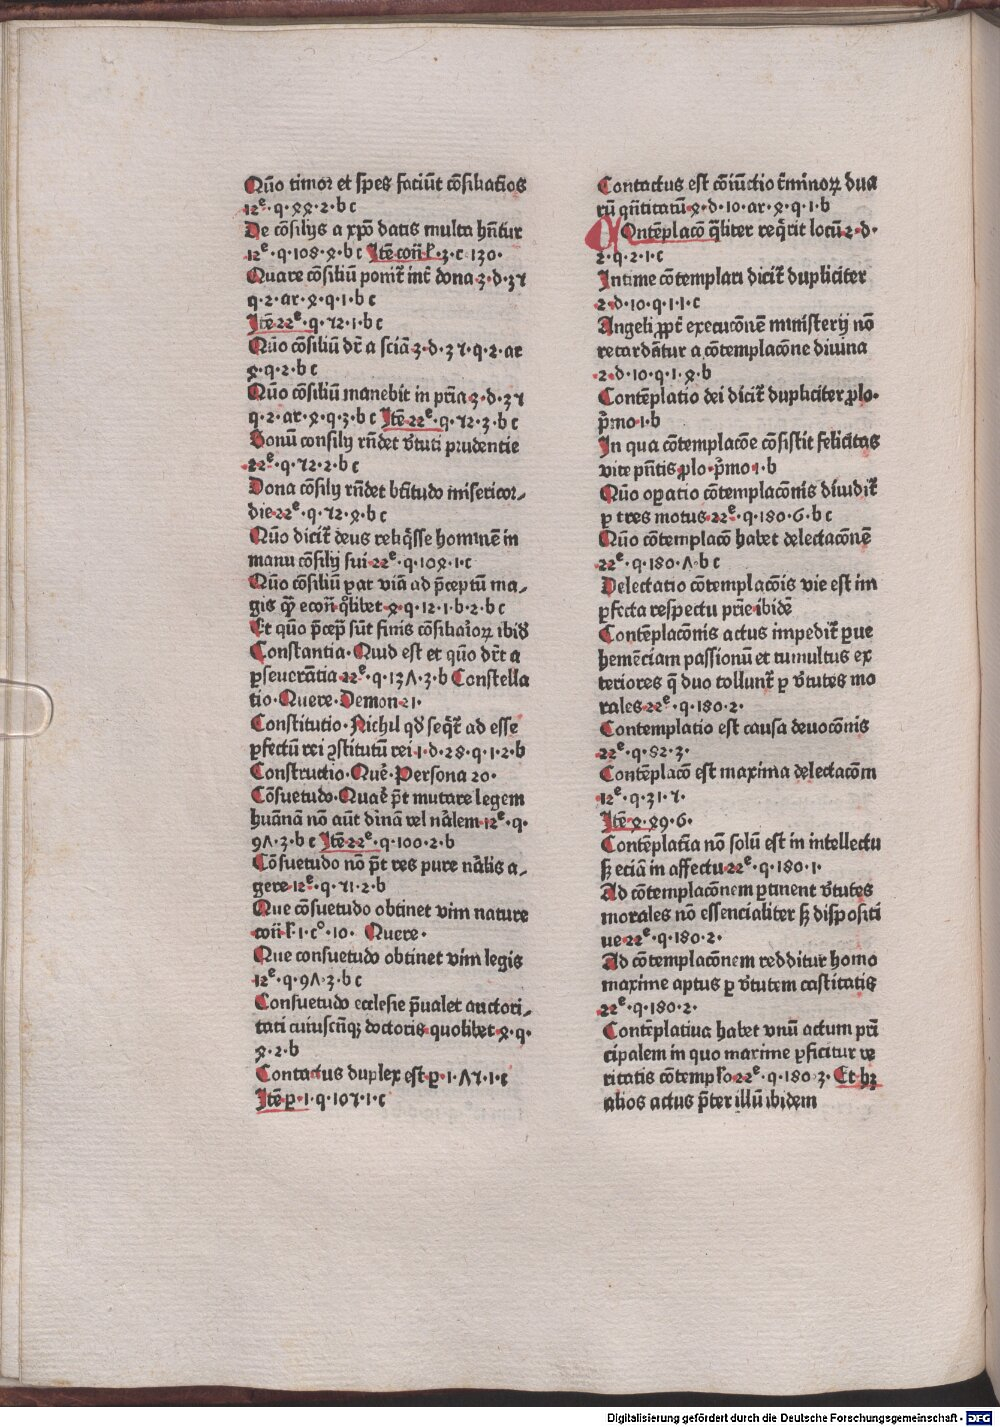 Quo᷒ timor et spes faciūt cōsiliatiōs
12ᵉ·q·ꝝꝝ·2·b c
De cōsilijs a xpō datis multa hn̄tur
12ᵉ·q·108·ꝝ·b c Itē con̄ l·3·c·130·
Quare cōsiliū ponit᷒ int᷒ dona 3·d·37
q·2·ar·ꝝ·q·1·b c
Itē 22ᵉ·q·72·1·b c
Qūo cōsiliū dr̄t a sciā 3·d·37·q·2·ar
ꝝ·q·2·b c
Qūo cōsiliū manebit in pr̄ia 3·d·37
q·2·ar·ꝝ·q·3·b c Itē 22ᵉ·q·72·3·b c
Bonū consilij rn̄det v̄tuti prudentie
22ᵉ·q·72·2·b c
Dona cōsilij rn̄det bt̄itudo misericor-
die 22ᵉ·q·72·ꝝ·b c
Qūo dicit᷒ deus reliq̄sse hominē in
manu cōsilij sui 22ᵉ·q·10ꝝ·1·c
Qūo cōsiliū ꝑar viā ad p̄ceptū ma-
gis qȝ econ̄ q̊libet ꝝ·q·12·1·b·2·b c
Et qūo p̄cep̄ sūt finis cōsiliaꝝ ibid̄
Constantia·Quid est et qūo dr̄t a
ꝑseuerātia 22ᵉ·q·13Λ·3·b Constella
tio·Quere·Demon 21·
Constitutio·Nichil qd̄ seqt᷒ ad esse
ꝑfectū rei ꝯstitutū rei·1·d·28·q·1·2·b
Constructio·Quē·Persona 20·
Cōsuetudo·Quaē p̄t mutare legem
huānā nō aūt dinā vel nālem 12ᵉ·q·
9Λ·3·b c Itē 22ᵉ·q·100·2·b
Cōsuetudo nō p̄t res pure nālis a-
gere 12ᵉ·q·71·2·b
Que cōsuetudo obtinet vim nature
con̄ l·1·c°·10· Quere·
Que consuetudo obtinet vim legis
12ᵉ·q·9Λ·3·b c
Consuetudo ecclesie p̄ualet auctori-
tati cuiuscūqȝ doctoris quolibet ꝝ·q·
ꝝ·2·b
Contactus duplex est ꝑ·1·Λ7·1·c
Itē ꝑ·1·q·107·1·c
Contactus est cōiūctio t̄minoꝝ dua
rū qn̄titatū ꝝ·d·10·ar·ꝝ·q·1·b
COntēplacō q̄liter req̄rit locū 2·d·
2·q·2·1·c
Intime cōtemplari dicit᷒ dupliciter
2·d·10·q·1·1·c
Angeli ꝓpt᷒ execucōnē ministerij nō
retardātur a cōtemplacōne diuina
2·d·10·q·1·ꝝ·b
Contēplatio dei dicit᷒ dupliciter ꝓlo·
p̄mo·1·b
In qua cōtemplacōe cōsistit felicitas
vite pn̄tis ꝓlo·p̄mo·1·b
Qūo oꝑatio cōtemplacōnis diuidit᷒
ꝑ tres motus 22ᵉ·q·180·6·b c
Qūo cōtemplacō habet delectacōnē
22ᵉ·q·180·Λ·b c
Delectatio cōtemplacōnis vie est im
ꝑfecta respectu pr̄ie ibidē
Contēplacōnis actus impedit᷒ ꝑ ue
hemēciam passionū et tumultus ex
teriores q̄ duo tollunt᷒ ꝑ v̄tutes mo
rales 22ᵉ·q·180·2·
Contemplatio est causa deuocōnis
22ᵉ·q·82·3·
Contēplacō est maxima delectacōm
12ᵉ·q·31·7·
Itē ꝝ·ꝝ9·6·
Contēplatīa nō solū est in intellectu
sȝ eciā in affectu 22ᵉ·q·180·1·
Ad cōtemplacōnem ꝑtinent v̄tutes
morales nō essencialiter sȝ dispositi
ue 22ᵉ·q·180·2·
Ad cōtemplacōnem redditur homo
maxime aptus ꝑ v̄tutem castitatis
22ᵉ·q·180·2·
Contēplatiua habet vnū actum pri̅
cipalem in quo maxime ꝑficitur ve
ritatis cōtempl̄o 22ᵉ·q·180·3·Et hȝ
alios actus p̄ter illū ibidem
Digitalisierung gefördert durch die Deutsche Forschungsgemeinschaft · DFG